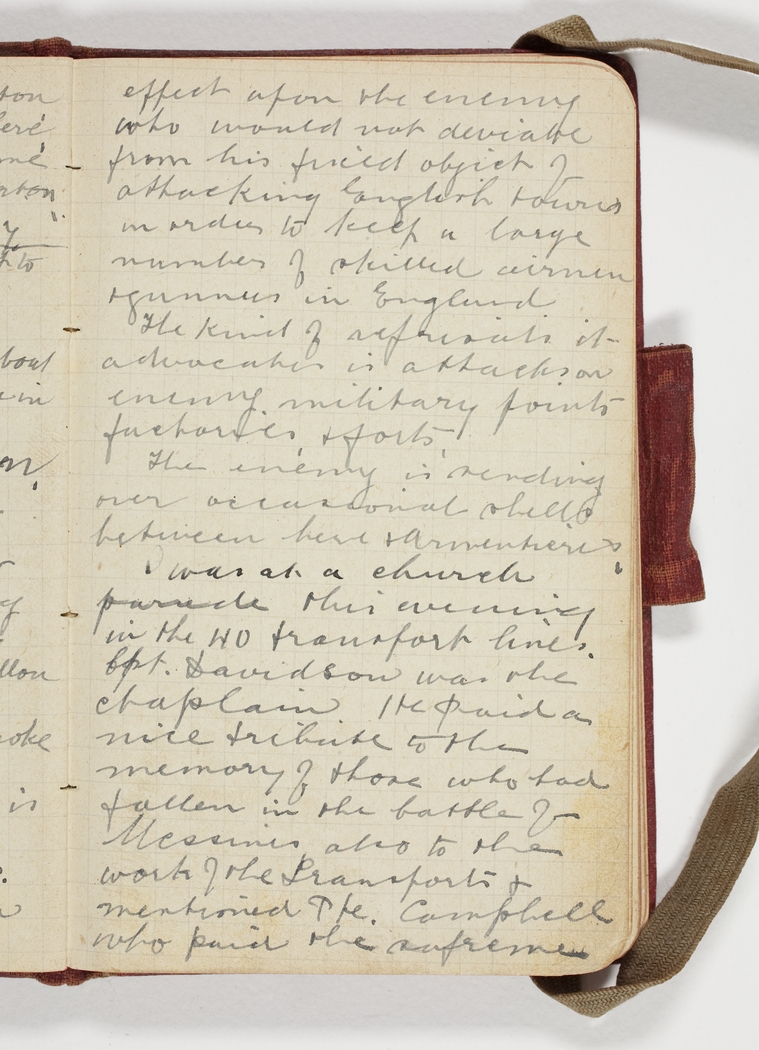 effect upon the enemy
who would not deviate
from his fixed object of
attacking English towns
in order to keep a large
number of skilled airmen
& gunners in England
The kind of reprisals it
advocates is attacks on
enemy military points
factories & forts
The enemy is sending
over occasional shells
between here & Armentieres
I was at a church
parade this evening
in the 40 transport lines.
Cpt. Davidson was the
chaplain He paid a
nice tribute to the
memory of those who had
fallen in the battle of
Messines also to the
work of the transports &
mentioned Pte. Campbell
who paid the supreme